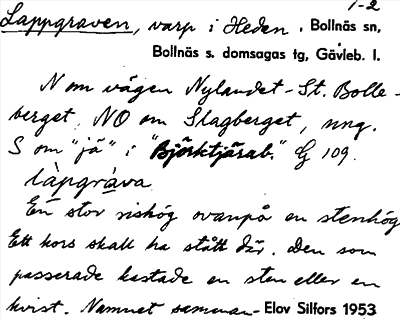 1-2
Lappgraven, varp i Heden, Bollnäs sn,
Bollnäs s. domsagas tg, Gävleb. l.
N om vägen Nylandet - St. Bolle-
berget, NO om Slagberget, ung.
S om "jä" i "Björktjärab." G 109.
làpgràva.
En stor rishög ovanpå en stenhög
Ett kors skall ha stått där. Den som
passerade kastade en sten eller en
kvist. Namnet samman- Elov Silfors 1953